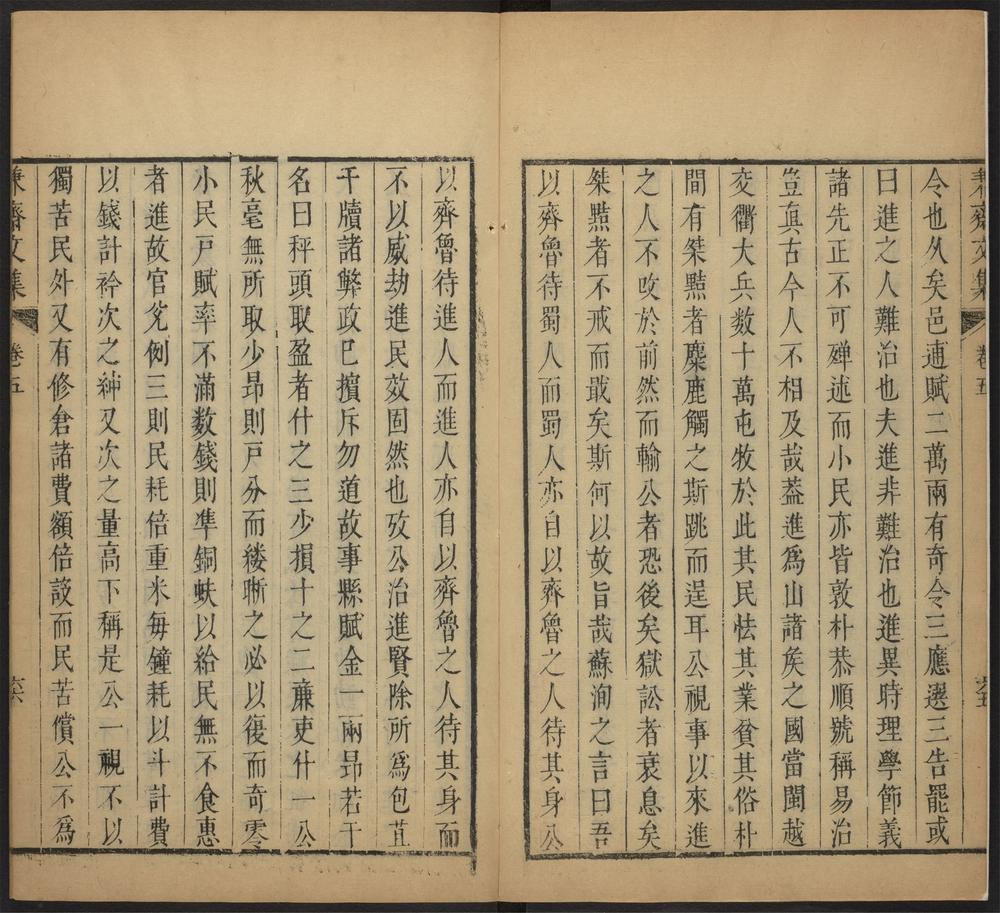 齋文集
卷五
六五
令也久矣邑逋賦二萬兩有奇令三應選三告罷或
曰進之人難治也夫進非難治也進異時理學節義
諸先正不可殫述而小民亦皆敦朴恭順號稱易治
豈真古今人不相及哉葢進爲山諸矦之國當閩越
交衢大兵数十萬屯牧於此其民怯其業貧其俗朴
間有桀黠者麋鹿觸之斯跳而逞耳公視事以來進
之人不咬於前然而輸公者恐後矣獄訟者衰息矣
桀黠者不戒而戢矣斯何以故旨哉蘇洵之言曰吾
以齊魯待蜀人而蜀人亦自以齊魯之人待其身公
以齊魯待進人而進人亦自以齊魯之人待其身而
不以威劫進民效固然也攷公治進賢除所爲包苴
干牘諸弊政巳擯斥勿道故事縣賦金一兩昻若干
名曰秤頭取盈者什之三少損十之二亷吏什一公
秋毫無所取少昻則戸分而縷晰之必以復而奇零
小民戸賦率不滿数錢則凖銅蚨以給民無不食惠
者進故官兊例三則民耗倍重米每鐘耗以斗計費
以錢計衿次之紳又次之量高下稱是公一視不以
獨苦民外又有修倉諸費額倍設而民苦償公不爲
齋文集
卷五
六六